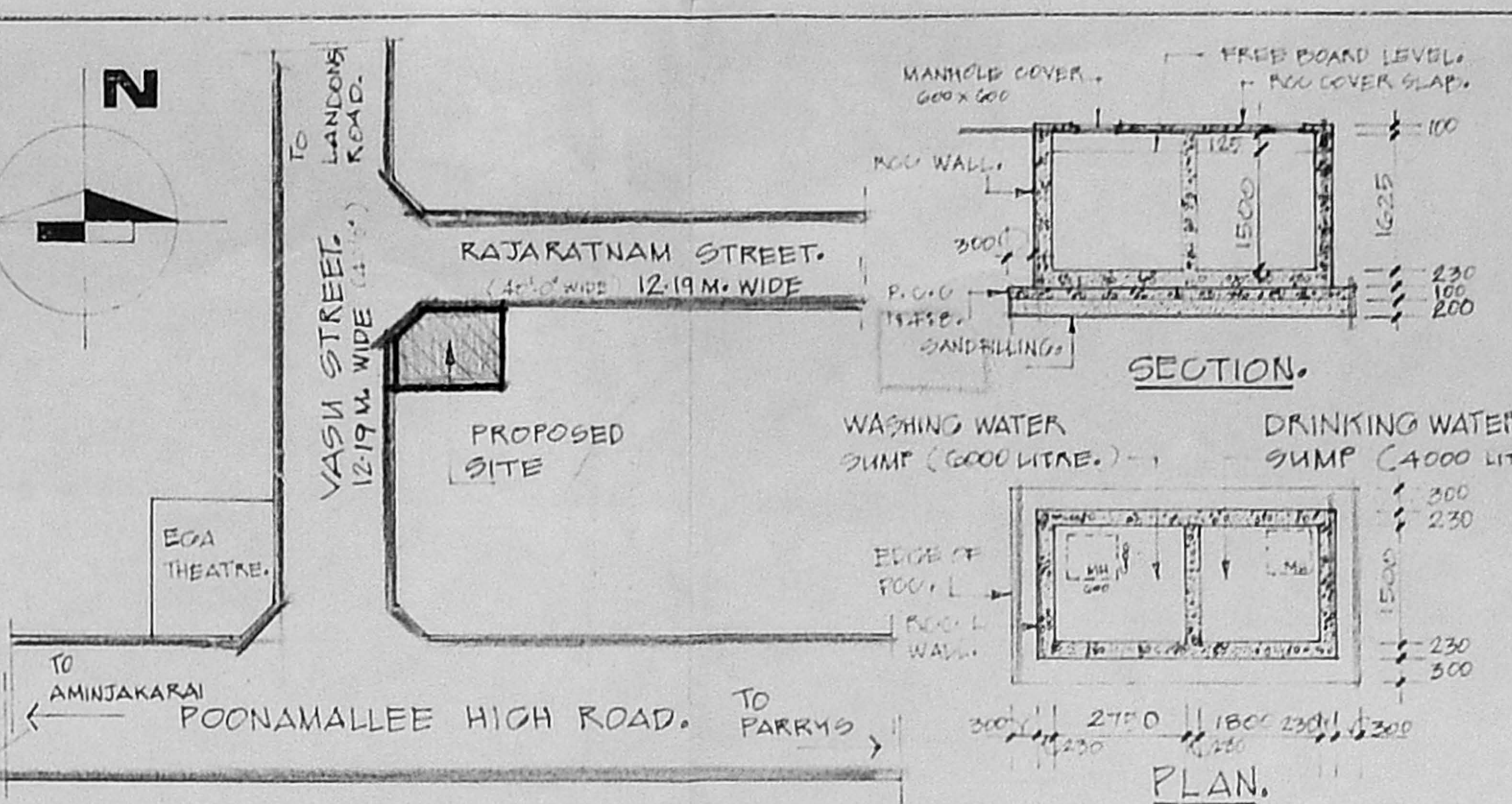 N
TO
LANDONS
ROAD.
VASU STREET.
12.19 M. WIDE
RAJARATNAM STREET.
(40'-0" WIDE) 12.19 M. WIDE
PROPOSED
SITE
EGA
THEATRE.
TO
AMINJAKARAI
POONAMALLEE HIGH ROAD.
TO
PARRYS
MANHOLE COVER.
600 x 600
FREE BOARD LEVEL.
RCC COVER SLAB.
RCC WALL.
125
1500
100
1625
230
100
200
300
P.C.C
SANDFILLING.
SECTION.
WASHING WATER
SUMP (6000 LITRE.)
DRINKING WATER
SUMP (4000 LIT
EDGE OF
PCC.
RCC
WALL.
MH
600
MH
300
230
1500
230
300
300
230
2750
230
1800
230
300
PLAN.